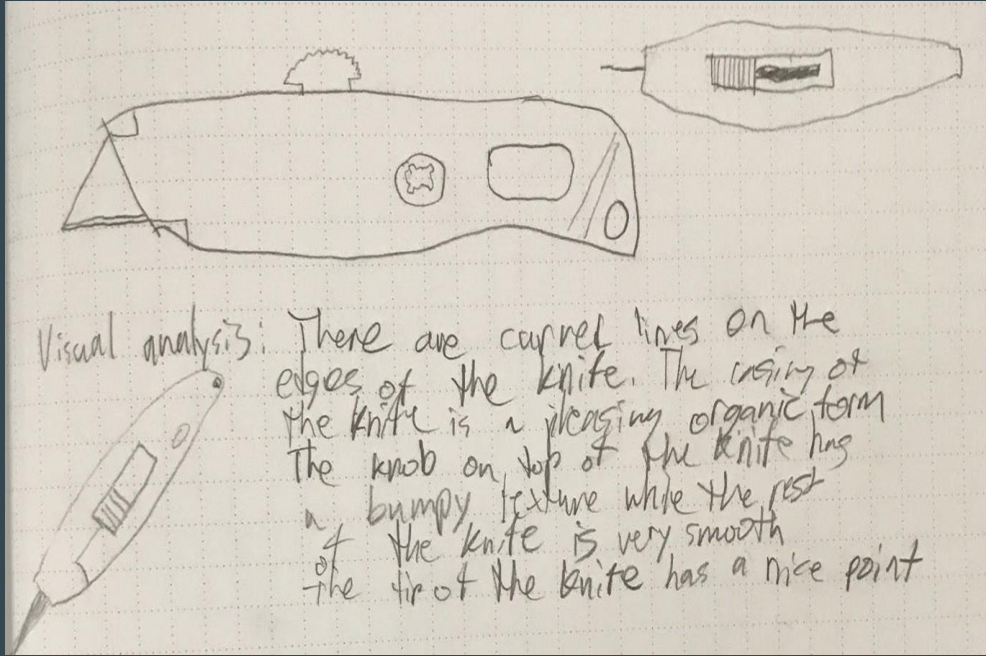 Visual analysis: There are curved lines on the
edges of the knife. The casing of
the knife is a pleasing organic form
The knob on top of the knife has
a bumpy texture while the rest
of the knife is very smooth
the tip of the knife has a nice point